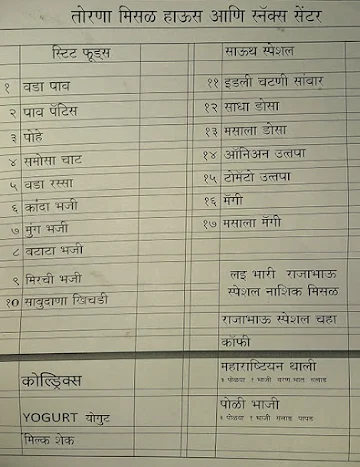 तोरणा मिसळ हाऊस आणि स्नॅक्स सेंटर
स्टिट फूड्स
१ वडा पाव
२ पाव पॅटिस
३ पोहे
४ समोसा चाट
५ वडा रस्सा
६ कांदा भजी
७ मुंग भजी
८ बटाटा भजी
९ मिरची भजी
१0 साबुदाणा खिचडी
कोल्ड्रिक्स
YOGURT योगुट
मिल्क शेक
साऊथ स्पेशल
११ इडली चटणी सांबार
१२ साधा डोसा
१३ मसाला डोसा
१४ ऑनिअन उत्तपा
१५ टोमेटो उत्तपा
१६ मॅगी
१७ मसाला मॅगी
लइ भारी राजाभाऊ
स्पेशल नाशिक मिसळ
राजाभाऊ स्पेशल चहा
कॉफी
महाराष्टियन थाली
३ पोळ्या १ भाजी वरण भात सलाड
पोळी भाजी
३ पोळ्या १ भाजी सलाड पापड